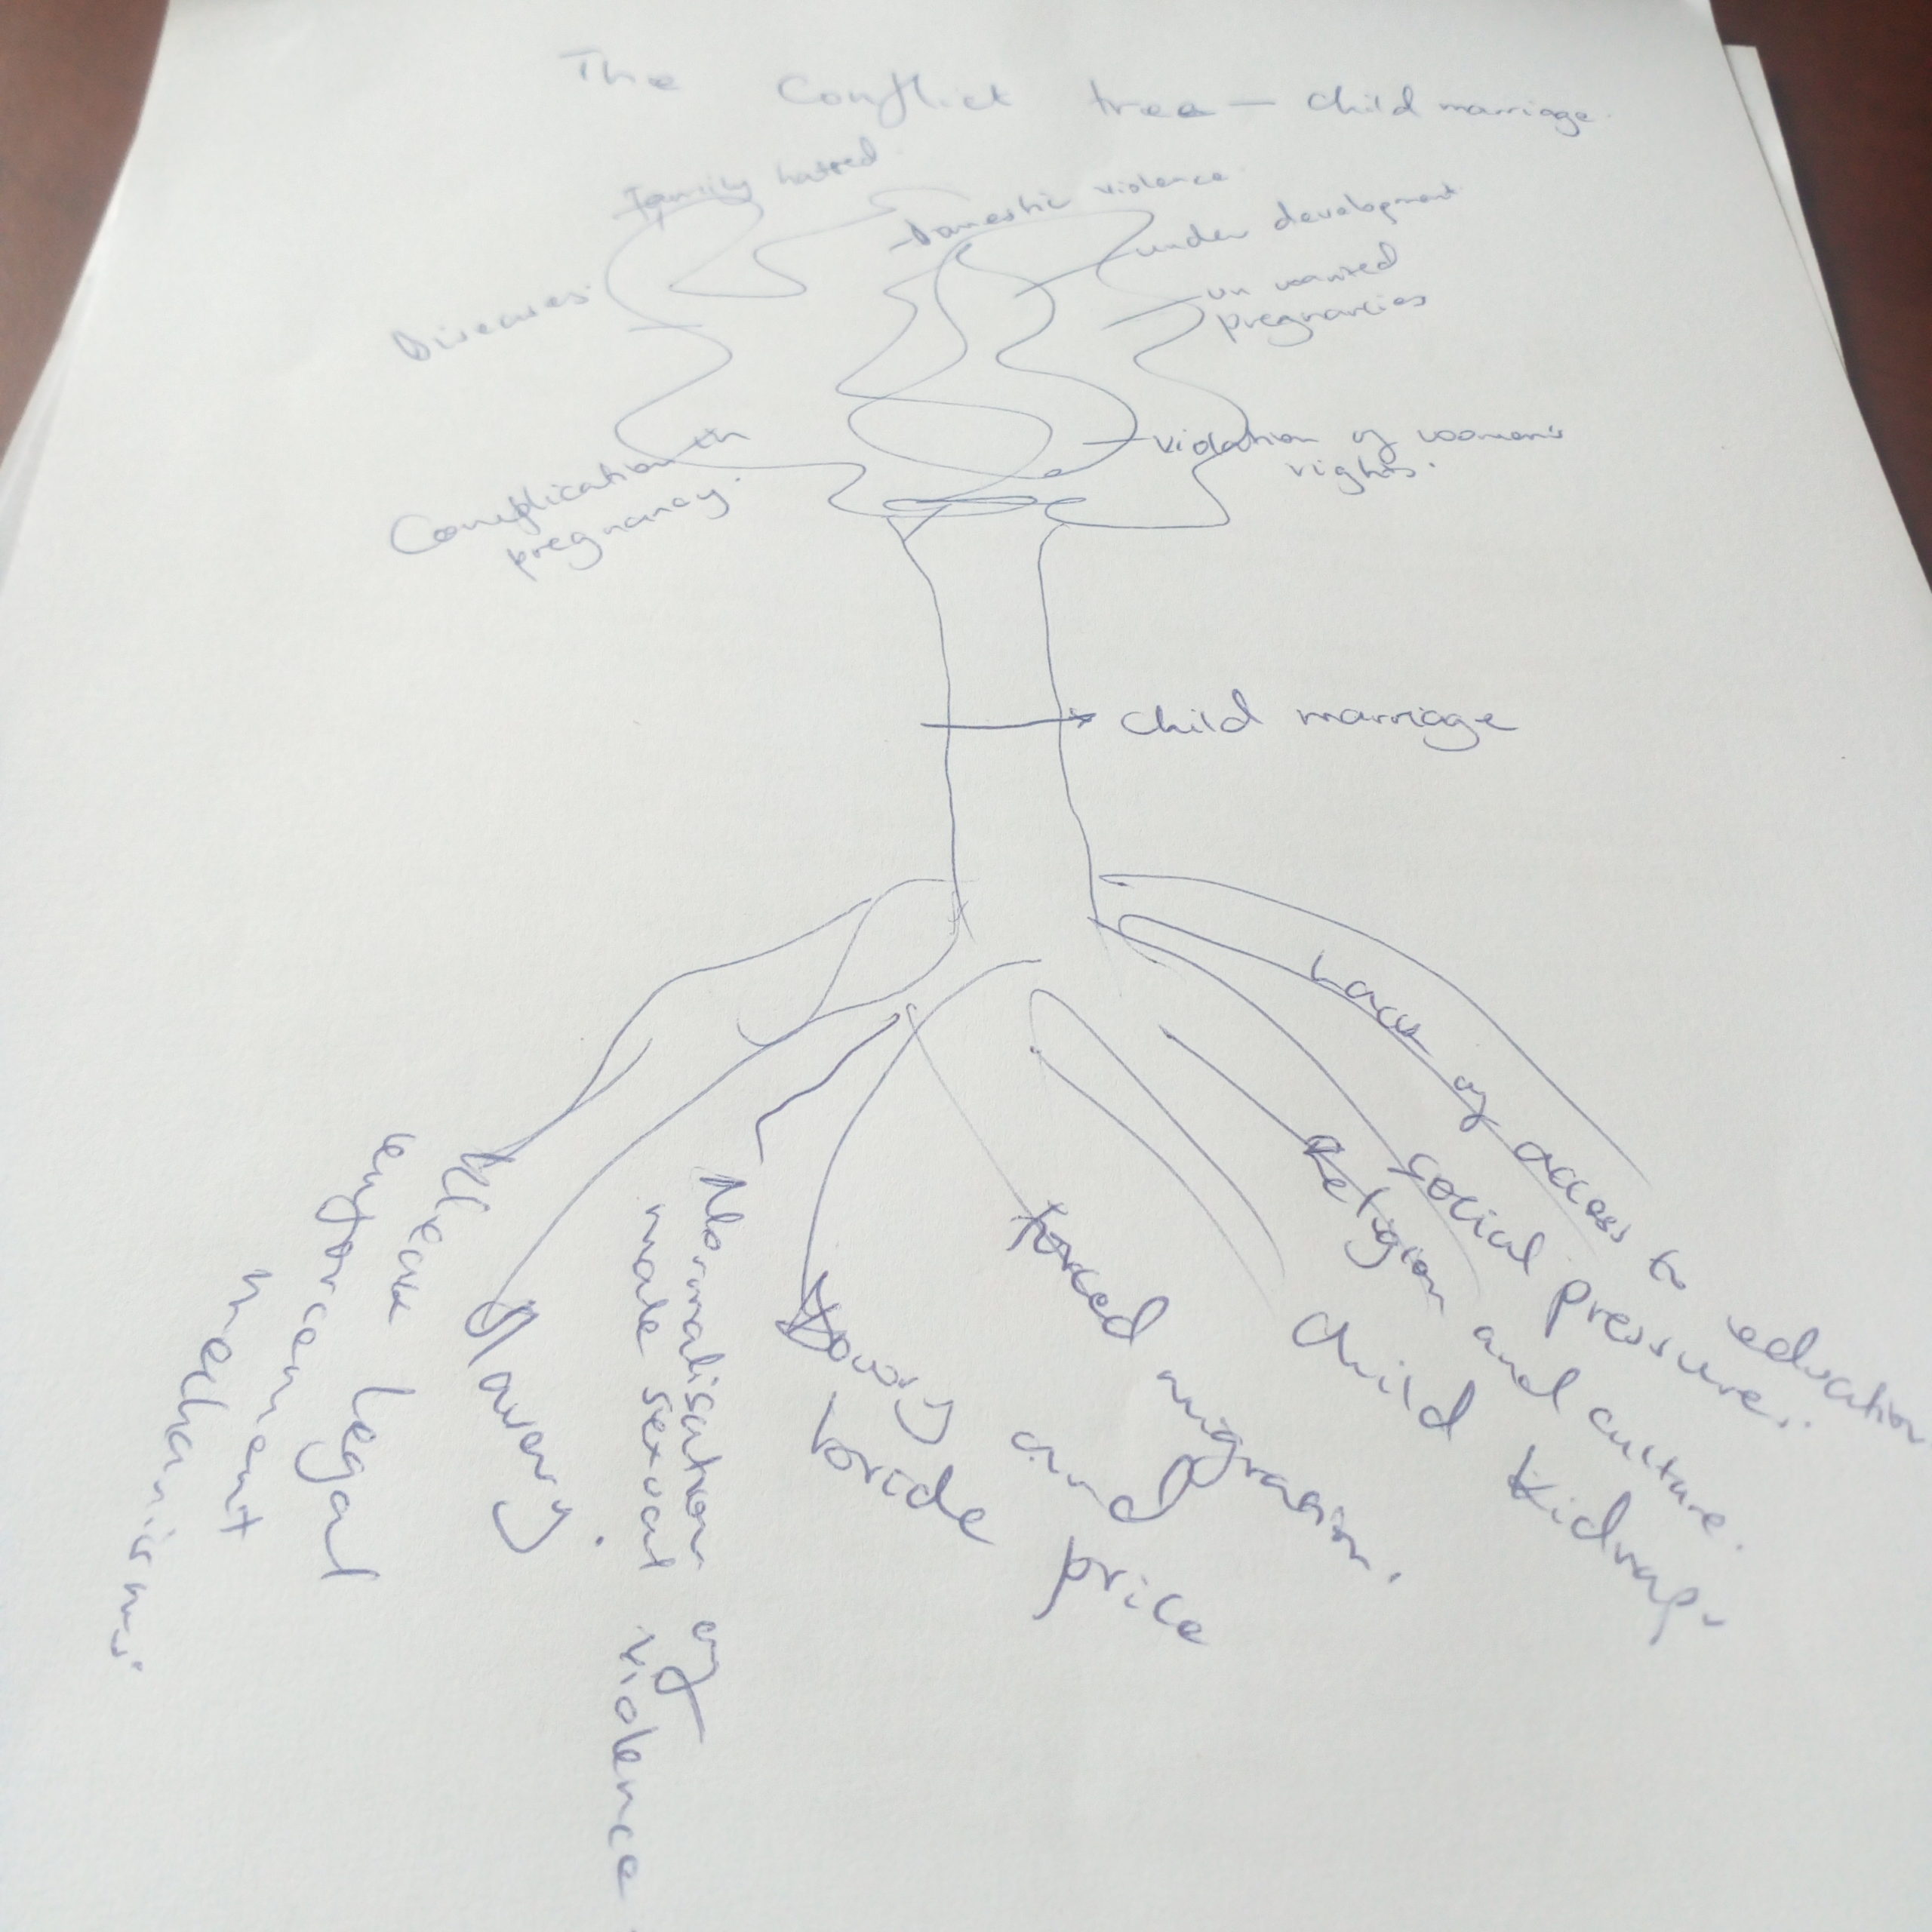 The Conflict tree - Child marriage.
Family hatred
Domestic violence
under development
un wanted
pregnancies
Diseases
violation of women's
rights.
Complication in
pregnancy.
Child marriage
Lack of access to education
Social pressures.
Religion and culture.
Child kidnap.
forced migration.
Dowry and
bride price
Normalisation of
male sexual violence
Slavery.
Weak legal
enforcement
mechanisms.